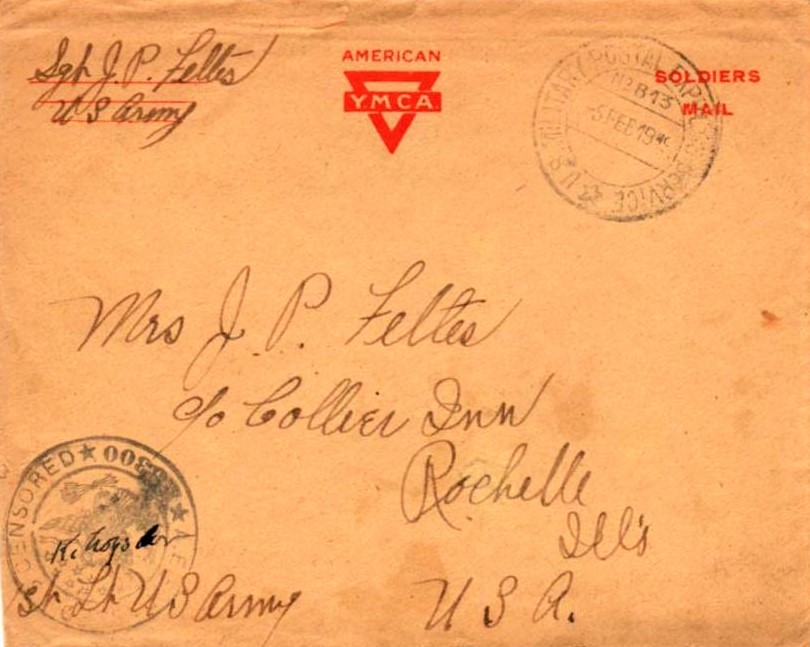 Sgt J. P. Feltes
US Army
AMERICAN
Y.M.C.A.
SOLDIERS
MAIL
U.S. MILITARY POSTAL EXPRESS SERVICE
No B13
-5 FEB 19
Mrs J. P. Feltes
c/o Collier Inn
Rochelle
Ill's
U S A.
CENSORED A.E.F.
Lt US Army